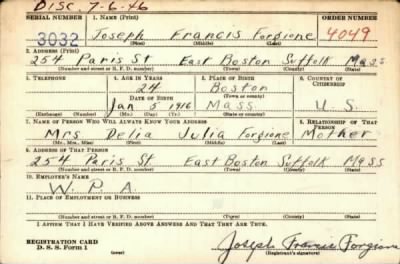 DISC. 7-6-46
SERIAL NUMBER 1. NAME (Print) ORDER NUMBER
3032 Joseph Francis Forgione 4049
(First) (Middle) (Last)
2. ADDRESS (Print)
254 Paris St East Boston Suffolk Mass
(Number and street or R. F. D. number) (Town) (County) (State)
3. TELEPHONE 4. AGE IN YEARS 5. PLACE OF BIRTH 6. COUNTRY OF CITIZENSHIP
24 Boston
DATE OF BIRTH (Town or county)
Jan 5 1916 Mass U. S.
(Exchange) (Number) (Mo.) (Day) (Yr.) (State or country)
7. NAME OF PERSON WHO WILL ALWAYS KNOW YOUR ADDRESS 8. RELATIONSHIP OF THAT PERSON
Mrs Delia Julia Forgione Mother
(Mr., Mrs., Miss) (First) (Middle) (Last)
9. ADDRESS OF THAT PERSON
254 Paris St East Boston Suffolk Mass
(Number and street or R. F. D. number) (Town) (County) (State)
10. EMPLOYER'S NAME
W. P. A.
11. PLACE OF EMPLOYMENT OR BUSINESS
(Number and street or R. F. D. number) (Town) (County) (State)
I AFFIRM THAT I HAVE VERIFIED ABOVE ANSWERS AND THAT THEY ARE TRUE.
REGISTRATION CARD
D. S. S. Form 1 (over) Joseph Francis Forgione
(Registrant's signature)